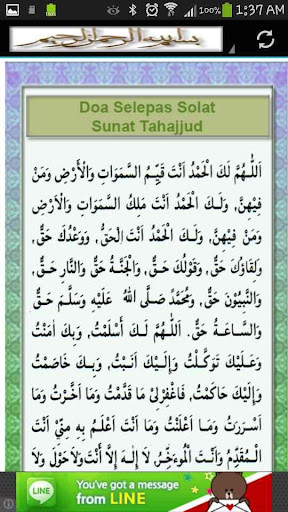 1:37 AM
بسم الله الرحمن الرحيم
Doa Selepas Solat
Sunat Tahajjud
اَللّٰهُمَّ لَكَ الْحَمْدُ أَنْتَ قَيِّمُ السَّمَوَاتِ وَالْأَرْضِ وَمَنْ
فِيْهِنَّ، وَلَكَ الْحَمْدُ أَنْتَ مَلِكُ السَّمَوَاتِ وَالْأَرْضِ
وَمَنْ فِيْهِنَّ، وَلَكَ الْحَمْدُ أَنْتَ الْحَقُّ، وَوَعْدُكَ حَقٌّ،
وَلِقَاؤُكَ حَقٌّ، وَقَوْلُكَ حَقٌّ، وَالْجَنَّةُ حَقٌّ وَالنَّارِ حَقٌّ،
وَالنَّبِيُّوْنَ حَقٌّ، وَمُحَمَّدٌ صَلَّى اللهُ عَلَيْهِ وَسَلَّمَ حَقٌّ
وَالسَّاعَةُ حَقٌّ. اَللّٰهُمَّ لَكَ أَسْلَمْتُ، وَبِكَ اٰمَنْتُ
وَعَلَيْكَ تَوَكَّلْتُ وَإِلَيْكَ أَنَبْتُ، وَبِكَ خَاصَمْتُ
وَإِلَيْكَ حَاكَمْتُ، فَاغْفِرْلِيْ مَا قَدَّمْتُ وَمَا أَخَّرْتُ وَمَا
أَسْرَرْتُ وَمَا أَعْلَنْتُ وَمَا أَنْتَ أَعْلَمُ بِهِ مِنِّيْ أَنْتَ
الْمُقَدِّمُ وَأَنْتَ الْمُوءَخِّرُ لَا إِلٰهَ إِلَّا أَنْتَ وَلَا حَوْلَ وَلَا
LINE
You've got a message
from LINE